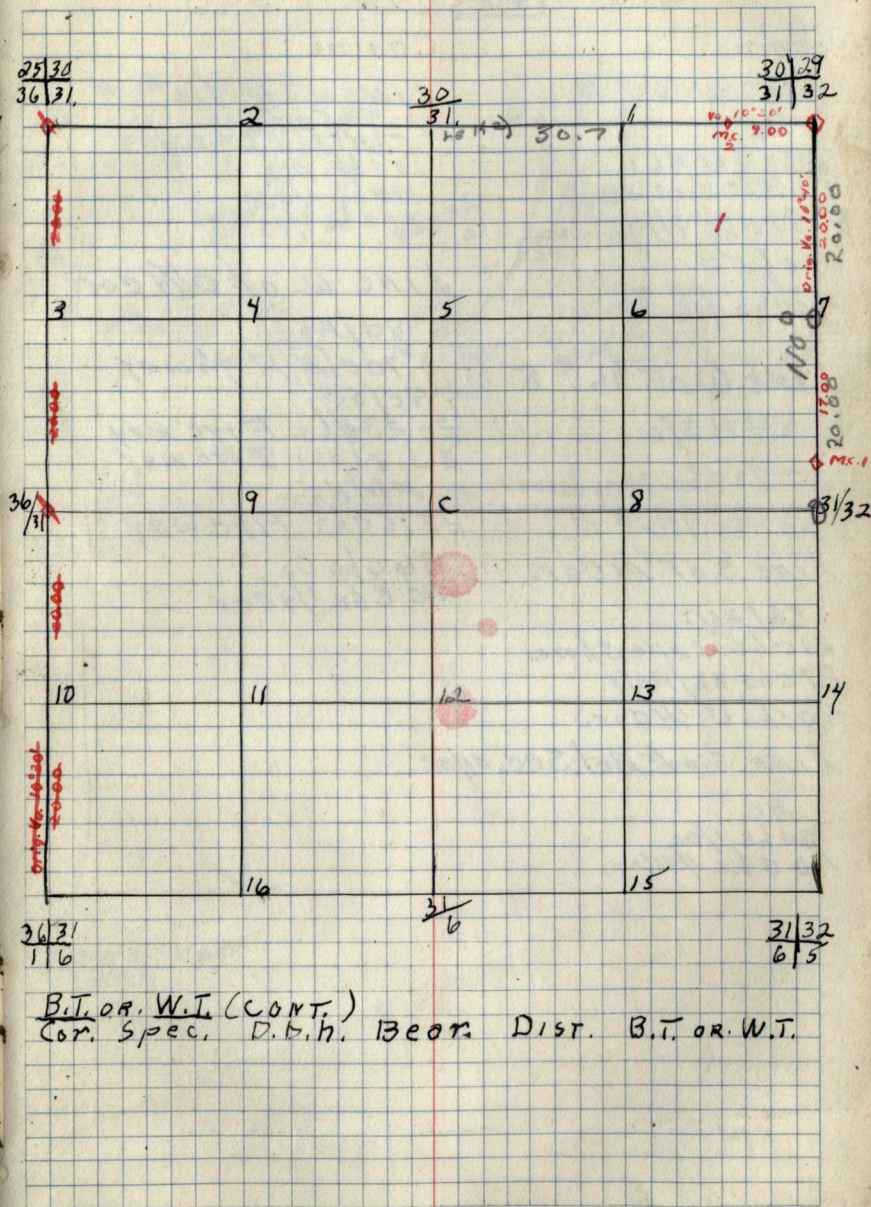 25|30
36|31.
30
31.
30|29
31|32
2
30.7
1
Va. 10°20'
M.C. 9.00
2
20.00
1
Orig. Va. 10°40'
20.00
20.00
3
4
5
6
7
20.00
No 0
17.00
20.00
M.C. 1
36/31
9
C
8
31/32
20.00
10
11
12
13
14
Orig. Va. 10°20'
20.00
16
15
36|31
1|6
31/6
31|32
6|5
B.T. OR. W.T. (CONT.)
Cor. Spec. D.b.h. Bear. DIST. B.T. OR. W.T.